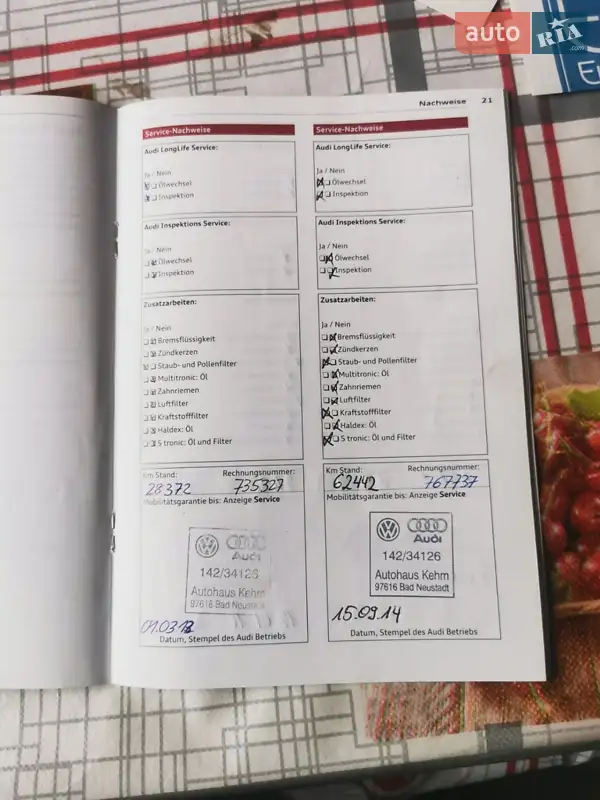 auto RIA.com
Eu
Nachweise 21
Service-Nachweise
Audi LongLife Service:
Ja / Nein
Ölwechsel
Inspektion
Audi Inspektions Service:
Ja / Nein
Ölwechsel
Inspektion
Zusatzarbeiten:
Ja / Nein
Bremsflüssigkeit
Zündkerzen
Staub- und Pollenfilter
Multitronic: Öl
Zahnriemen
Luftfilter
Kraftstofffilter
Haldex: Öl
S tronic: Öl und Filter
Km Stand: Rechnungsnummer:
28372 735327
Mobilitätsgarantie bis: Anzeige Service
Audi
142/34126
Autohaus Kehm
97616 Bad Neustadt
Datum, Stempel des Audi Betriebs
Service-Nachweise
Audi LongLife Service:
Ja / Nein
Ölwechsel
Inspektion
Audi Inspektions Service:
Ja / Nein
Ölwechsel
Inspektion
Zusatzarbeiten:
Ja / Nein
Bremsflüssigkeit
Zündkerzen
Staub- und Pollenfilter
Multitronic: Öl
Zahnriemen
Luftfilter
Kraftstofffilter
Haldex: Öl
S tronic: Öl und Filter
Km Stand: Rechnungsnummer:
62442 767737
Mobilitätsgarantie bis: Anzeige Service
Audi
142/34126
Autohaus Kehm
97616 Bad Neustadt
15.09.14
Datum, Stempel des Audi Betriebs